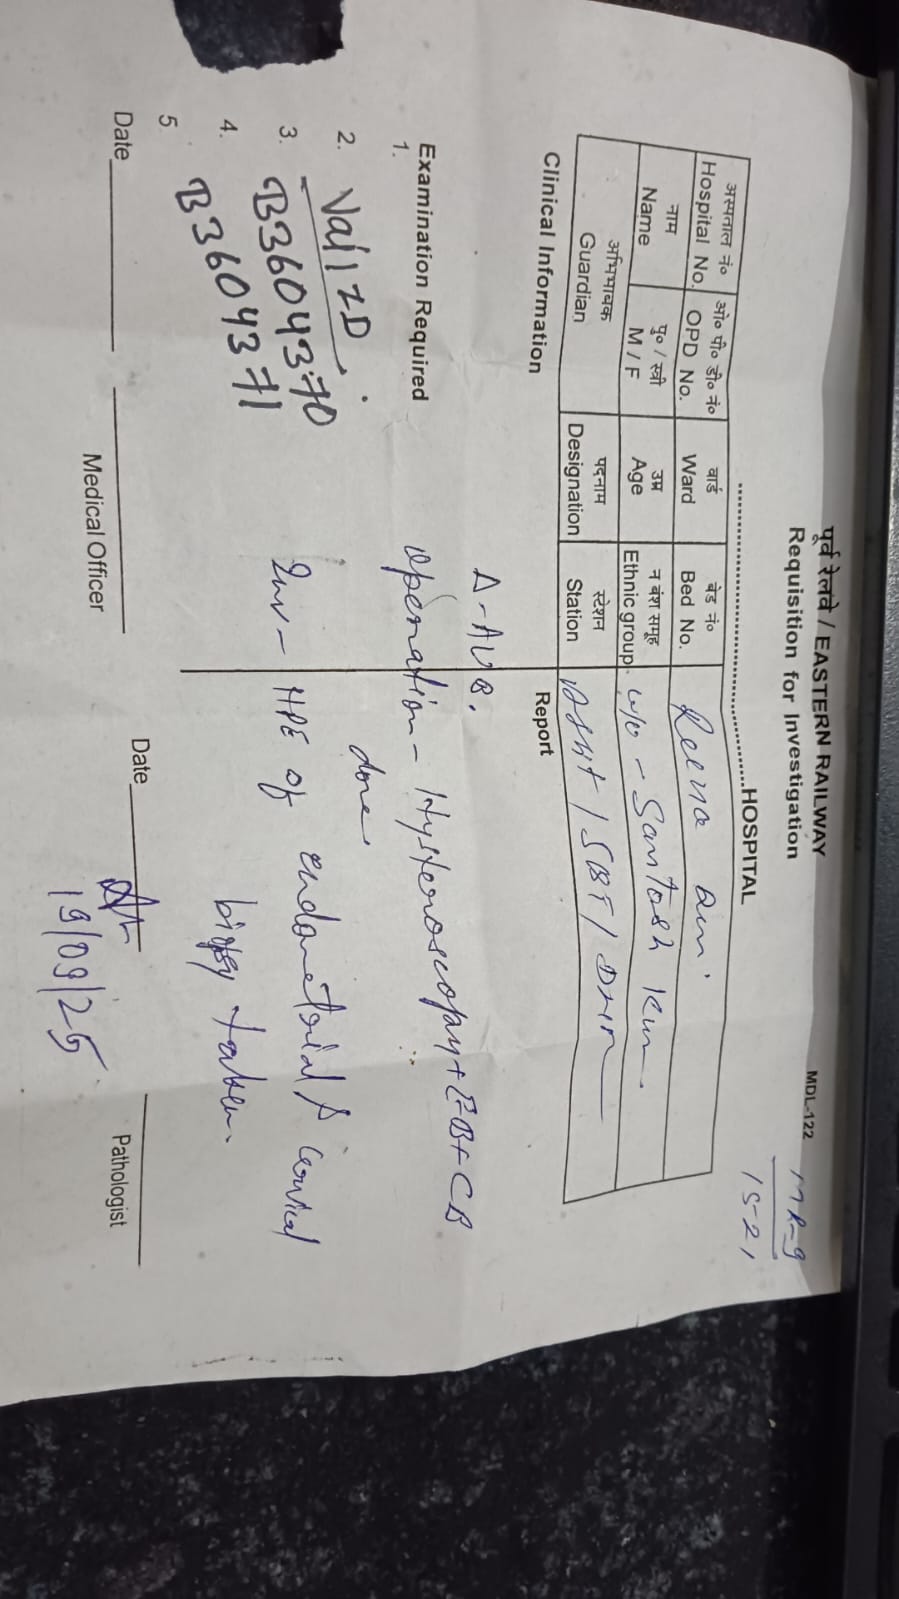 पूर्व रेलवे / EASTERN RAILWAY
Requisition for Investigation
MDL-122
MR-9
15-21
HOSPITAL
अस्पताल नं०
Hospital No.
ओ० पी० डी० नं०
OPD No.
वार्ड
Ward
बेड नं०
Bed No.
नाम
Name
पु० / स्त्री
M / F
उम्र
Age
न वंश समूह
Ethnic group
अभिभावक
Guardian
पदनाम
Designation
स्टेशन
Station
Reena
w/o - Santosh Kum
/ SBT / DHN
Clinical Information
Report
Δ - AUB.
Examination Required
1.
operation - Hysteroscopy + EB + CB
done
2.
3. B3604370
4. B3604371
5.
Inv - HPE of endometrial & cervical
biopsy taken.
Date
Medical Officer
Date
19/09/25
Pathologist